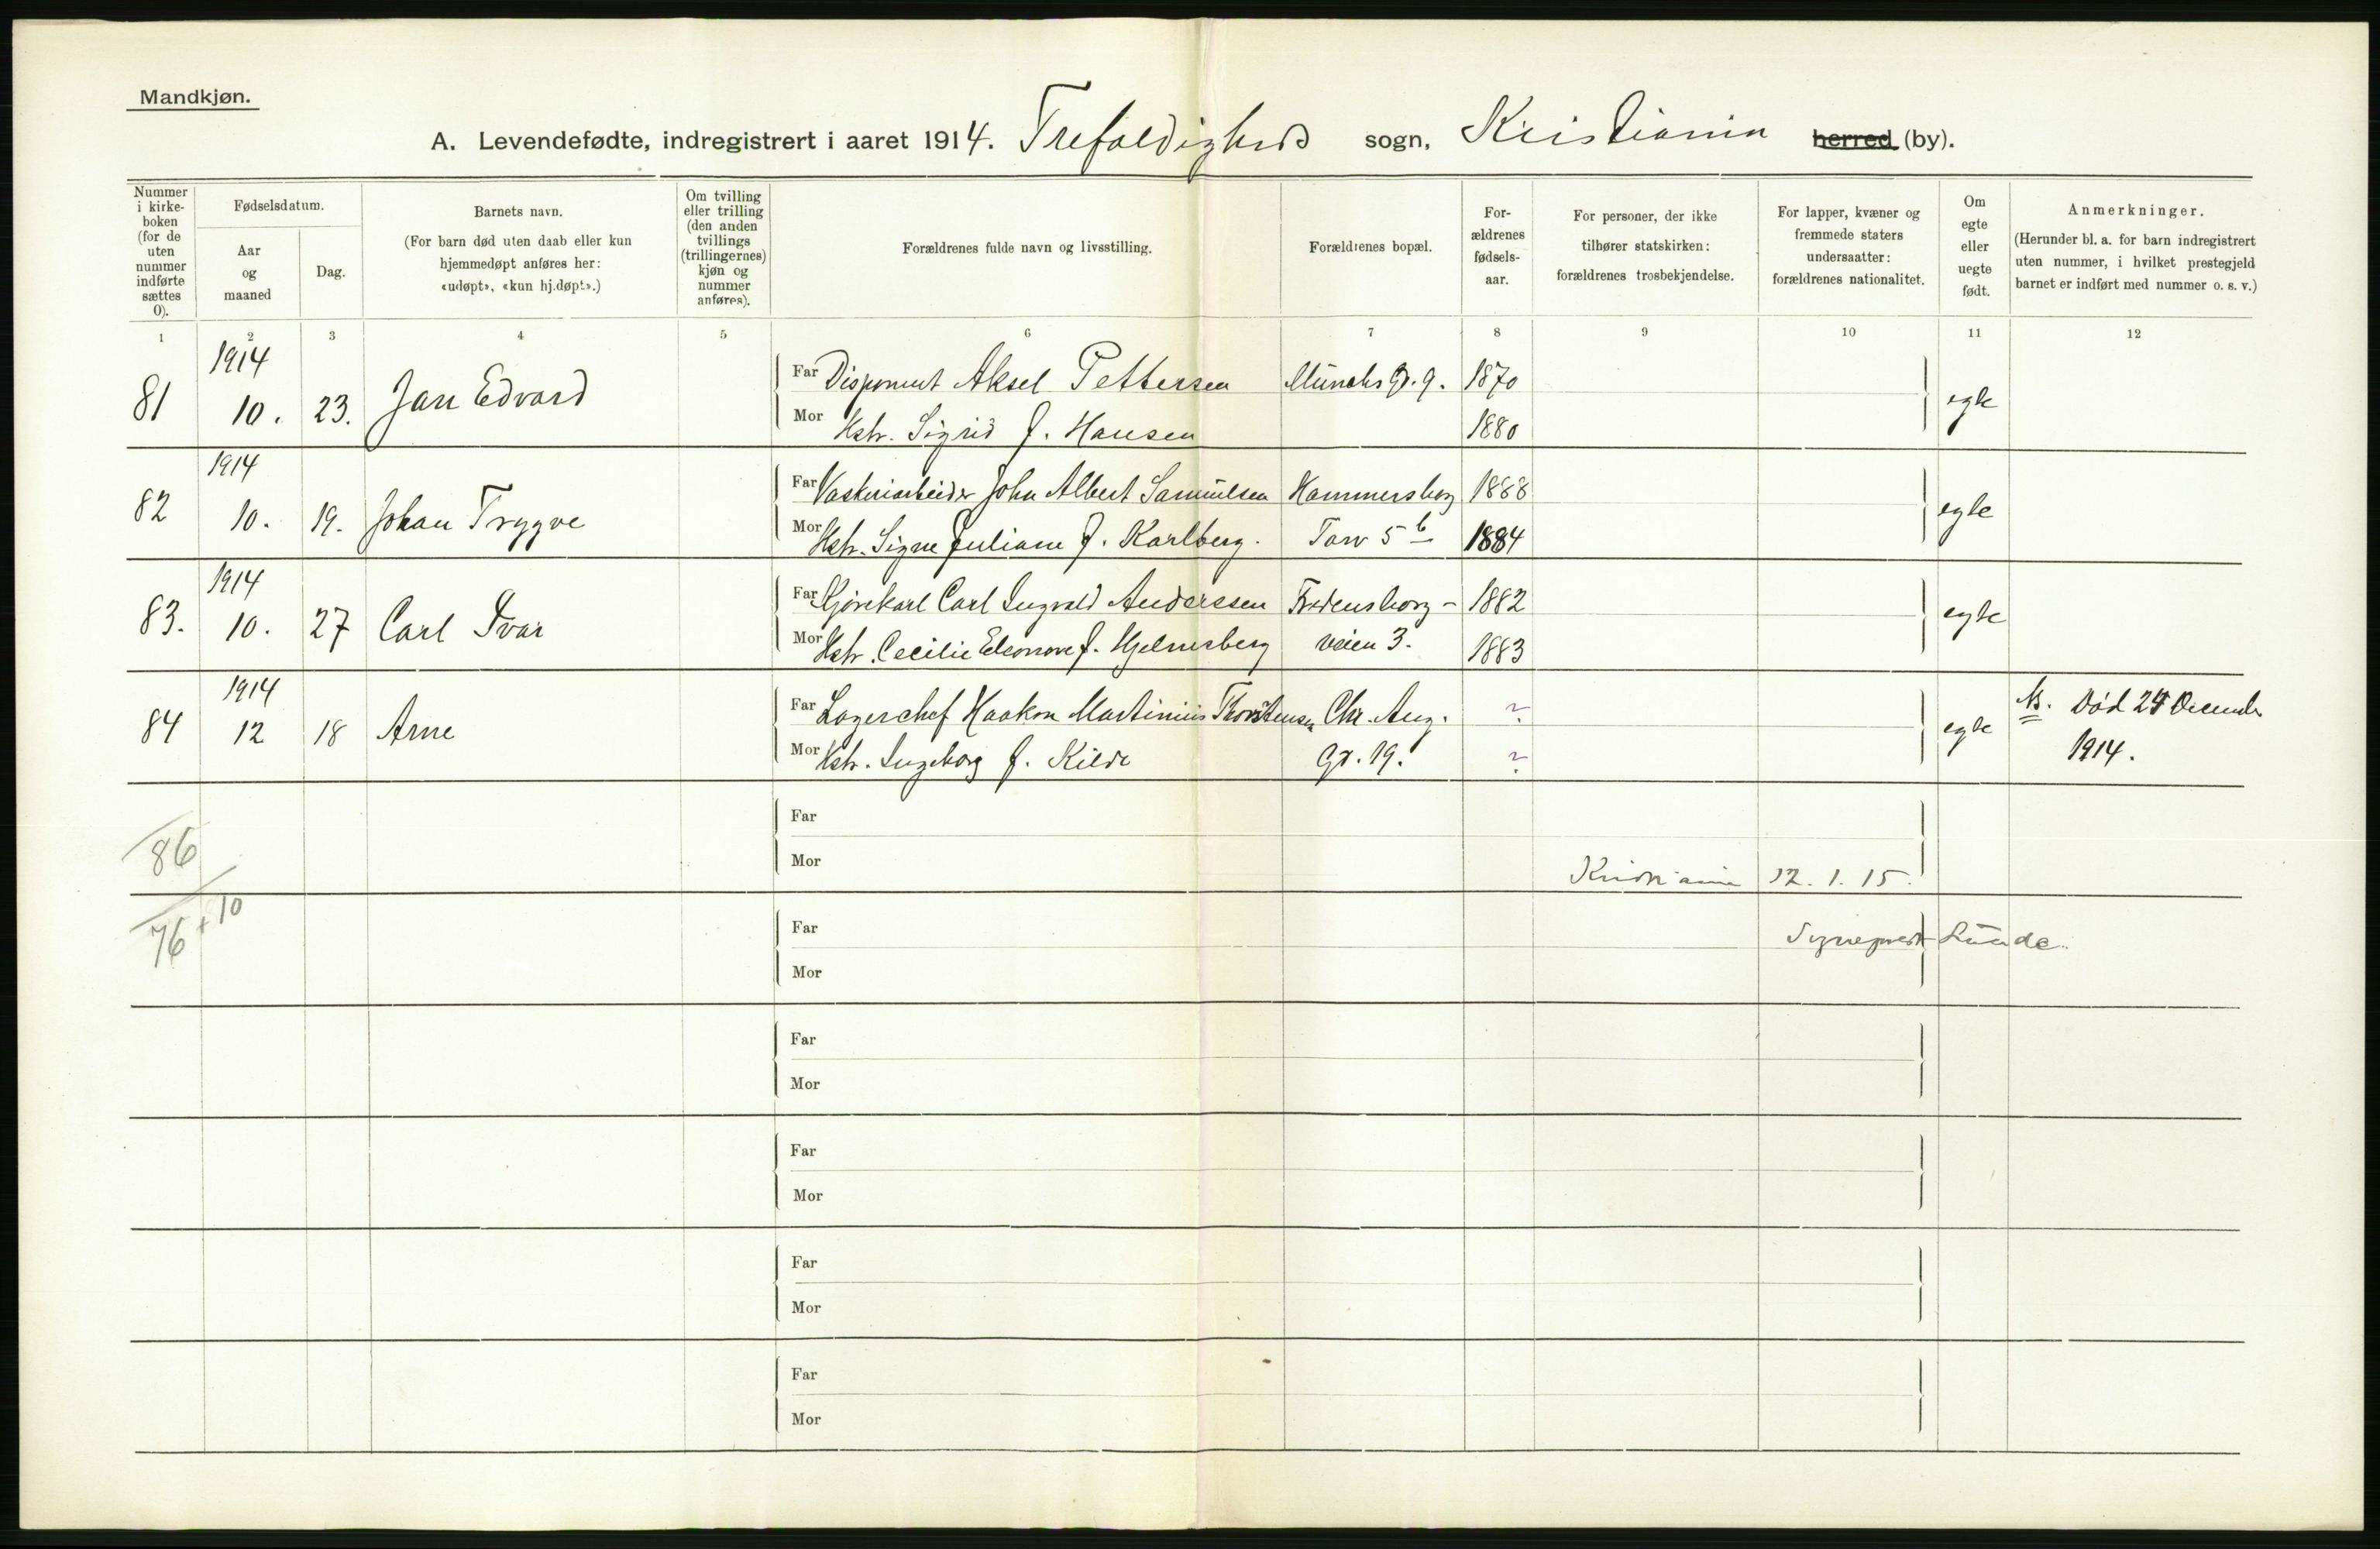 Mandkjøn.
A. Levendefødte, indregistrert i aaret 1914. Trefoldigheds sogn, Kristiania herred (by).
Nummer i kirke-boken (for de uten nummer indførte sættes 0).
Fødselsdatum.
Aar og maaned
Dag.
Barnets navn.
(For barn død uten daab eller kun hjemmedøpt anføres her: «udøpt», «kun hj.døpt».)
Om tvilling eller trilling (den anden tvillings (trillingernes) kjøn og nummer anføres).
Forældrenes fulde navn og livsstilling.
Forældrenes bopæl.
For-ældrenes fødsels-aar.
For personer, der ikke tilhører statskirken: forældrenes trosbekjendelse.
For lapper, kvæner og fremmede staters undersaatter: forældrenes nationalitet.
Om egte eller uegte født.
Anmerkninger.
(Herunder bl. a. for barn indregistrert uten nummer, i hvilket prestegjeld barnet er indført med nummer o. s. v.)
1 2 3 4 5 6 7 8 9 10 11 12
81 1914 10. 23. Jan Edvard Far Disponent Aksel Pettersen Munchs Gd. 9. 1870 egte
Mor Hstr. Sigrid f. Hansen 1880
82 1914 10. 19. Johan Trygve Far Vaskeriarbeider John Albert Samuelsen Hammersborg 1888 egte
Mor Hstr. Signe Juliane f. Karlberg. Torv 5 b 1884
83. 1914 10. 27 Carl Ivar Far Kjørekarl Carl Ingvald Anderssen Fredensborg- 1882 egte
Mor Hstr. Cecilie Eleonore f. Hjelmsberg veien 3. 1883
84 1914 12 18 Arne Far Lagerchef Haakon Martinius Thorstensen Chr. Aug. ? egte Ns. Død 24 December
Mor Hstr. Ingeborg f. Kilde Gd. 19. ? 1914.
Far
86
Mor
Kristiania 12. 1. 15.
76 + 10
Far
Sogneprest Lunde.
Mor
Far
Mor
Far
Mor
Far
Mor
Far
Mor